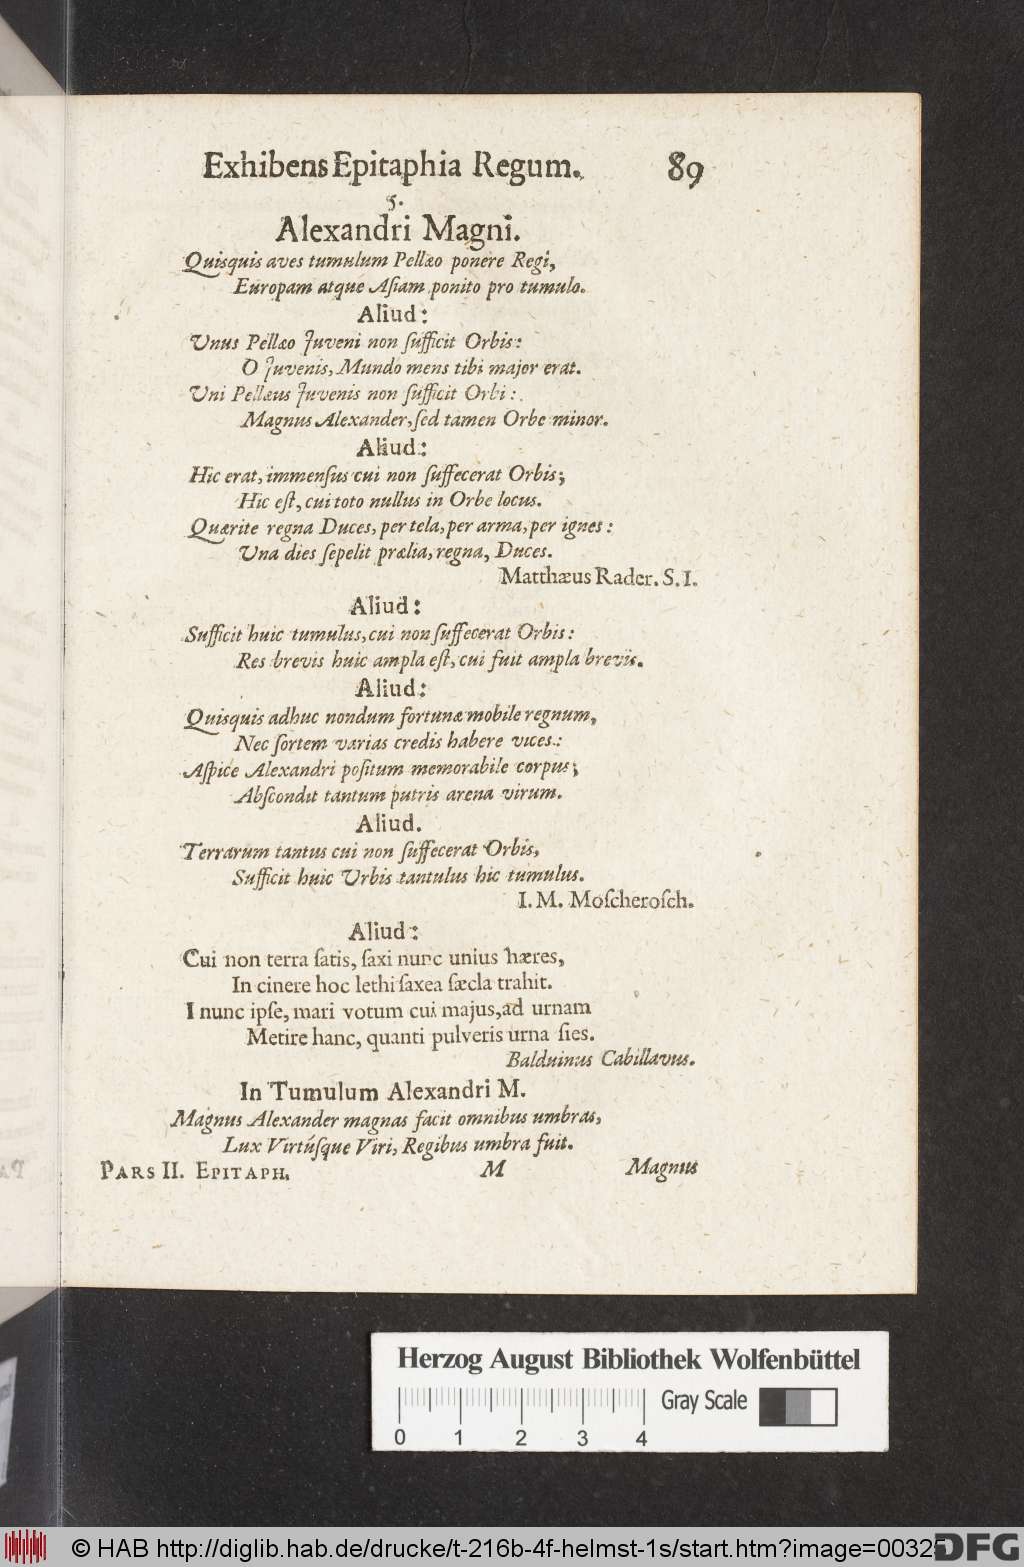 Exhibens Epitaphia Regum. 89
5.
Alexandri Magni.
Quisquis aves tumulum Pellæo ponere Regi,
Europam atque Aſiam ponito pro tumulo.
Aliud:
Unus Pellæo Juveni non ſufficit Orbis:
O Juvenis, Mundo mens tibi major erat.
Uni Pellæus Juvenis non ſufficit Orbi:
Magnus Alexander, ſed tamen Orbe minor.
Aliud:
Hic erat, immenſus cui non ſuffecerat Orbis;
Hic eſt, cui toto nullus in Orbe locus.
Quærite regna Duces, per tela, per arma, per ignes:
Una dies ſepelit prælia, regna, Duces.
Matthæus Rader. S. I.
Aliud:
Sufficit huic tumulus, cui non ſuffecerat Orbis:
Res brevis huic ampla eſt, cui fuit ampla brevis.
Aliud:
Quisquis adhuc nondum fortunæ mobile regnum,
Nec ſortem varias credis habere vices:
Aſpice Alexandri poſitum memorabile corpus;
Abſcondit tantum putris arena virum.
Aliud.
Terrarum tantus cui non ſuffecerat Orbis,
Sufficit huic Urbis tantulus hic tumulus.
I. M. Moſcheroſch.
Aliud:
Cui non terra ſatis, ſaxi nunc unius hæres,
In cinere hoc lethi ſaxea ſæcla trahit.
I nunc ipſe, mari votum cui majus, ad urnam
Metire hanc, quanti pulveris urna ſies.
Balduinus Cabillavus.
In Tumulum Alexandri M.
Magnus Alexander magnas facit omnibus umbras,
Lux Virtúſque Viri, Regibus umbra fuit.
PARS II. EPITAPH. M Magnus
Herzog August Bibliothek Wolfenbüttel
Gray Scale
0 1 2 3 4
© HAB http://diglib.hab.de/drucke/t-216b-4f-helmst-1s/start.htm?image=00325
DFG